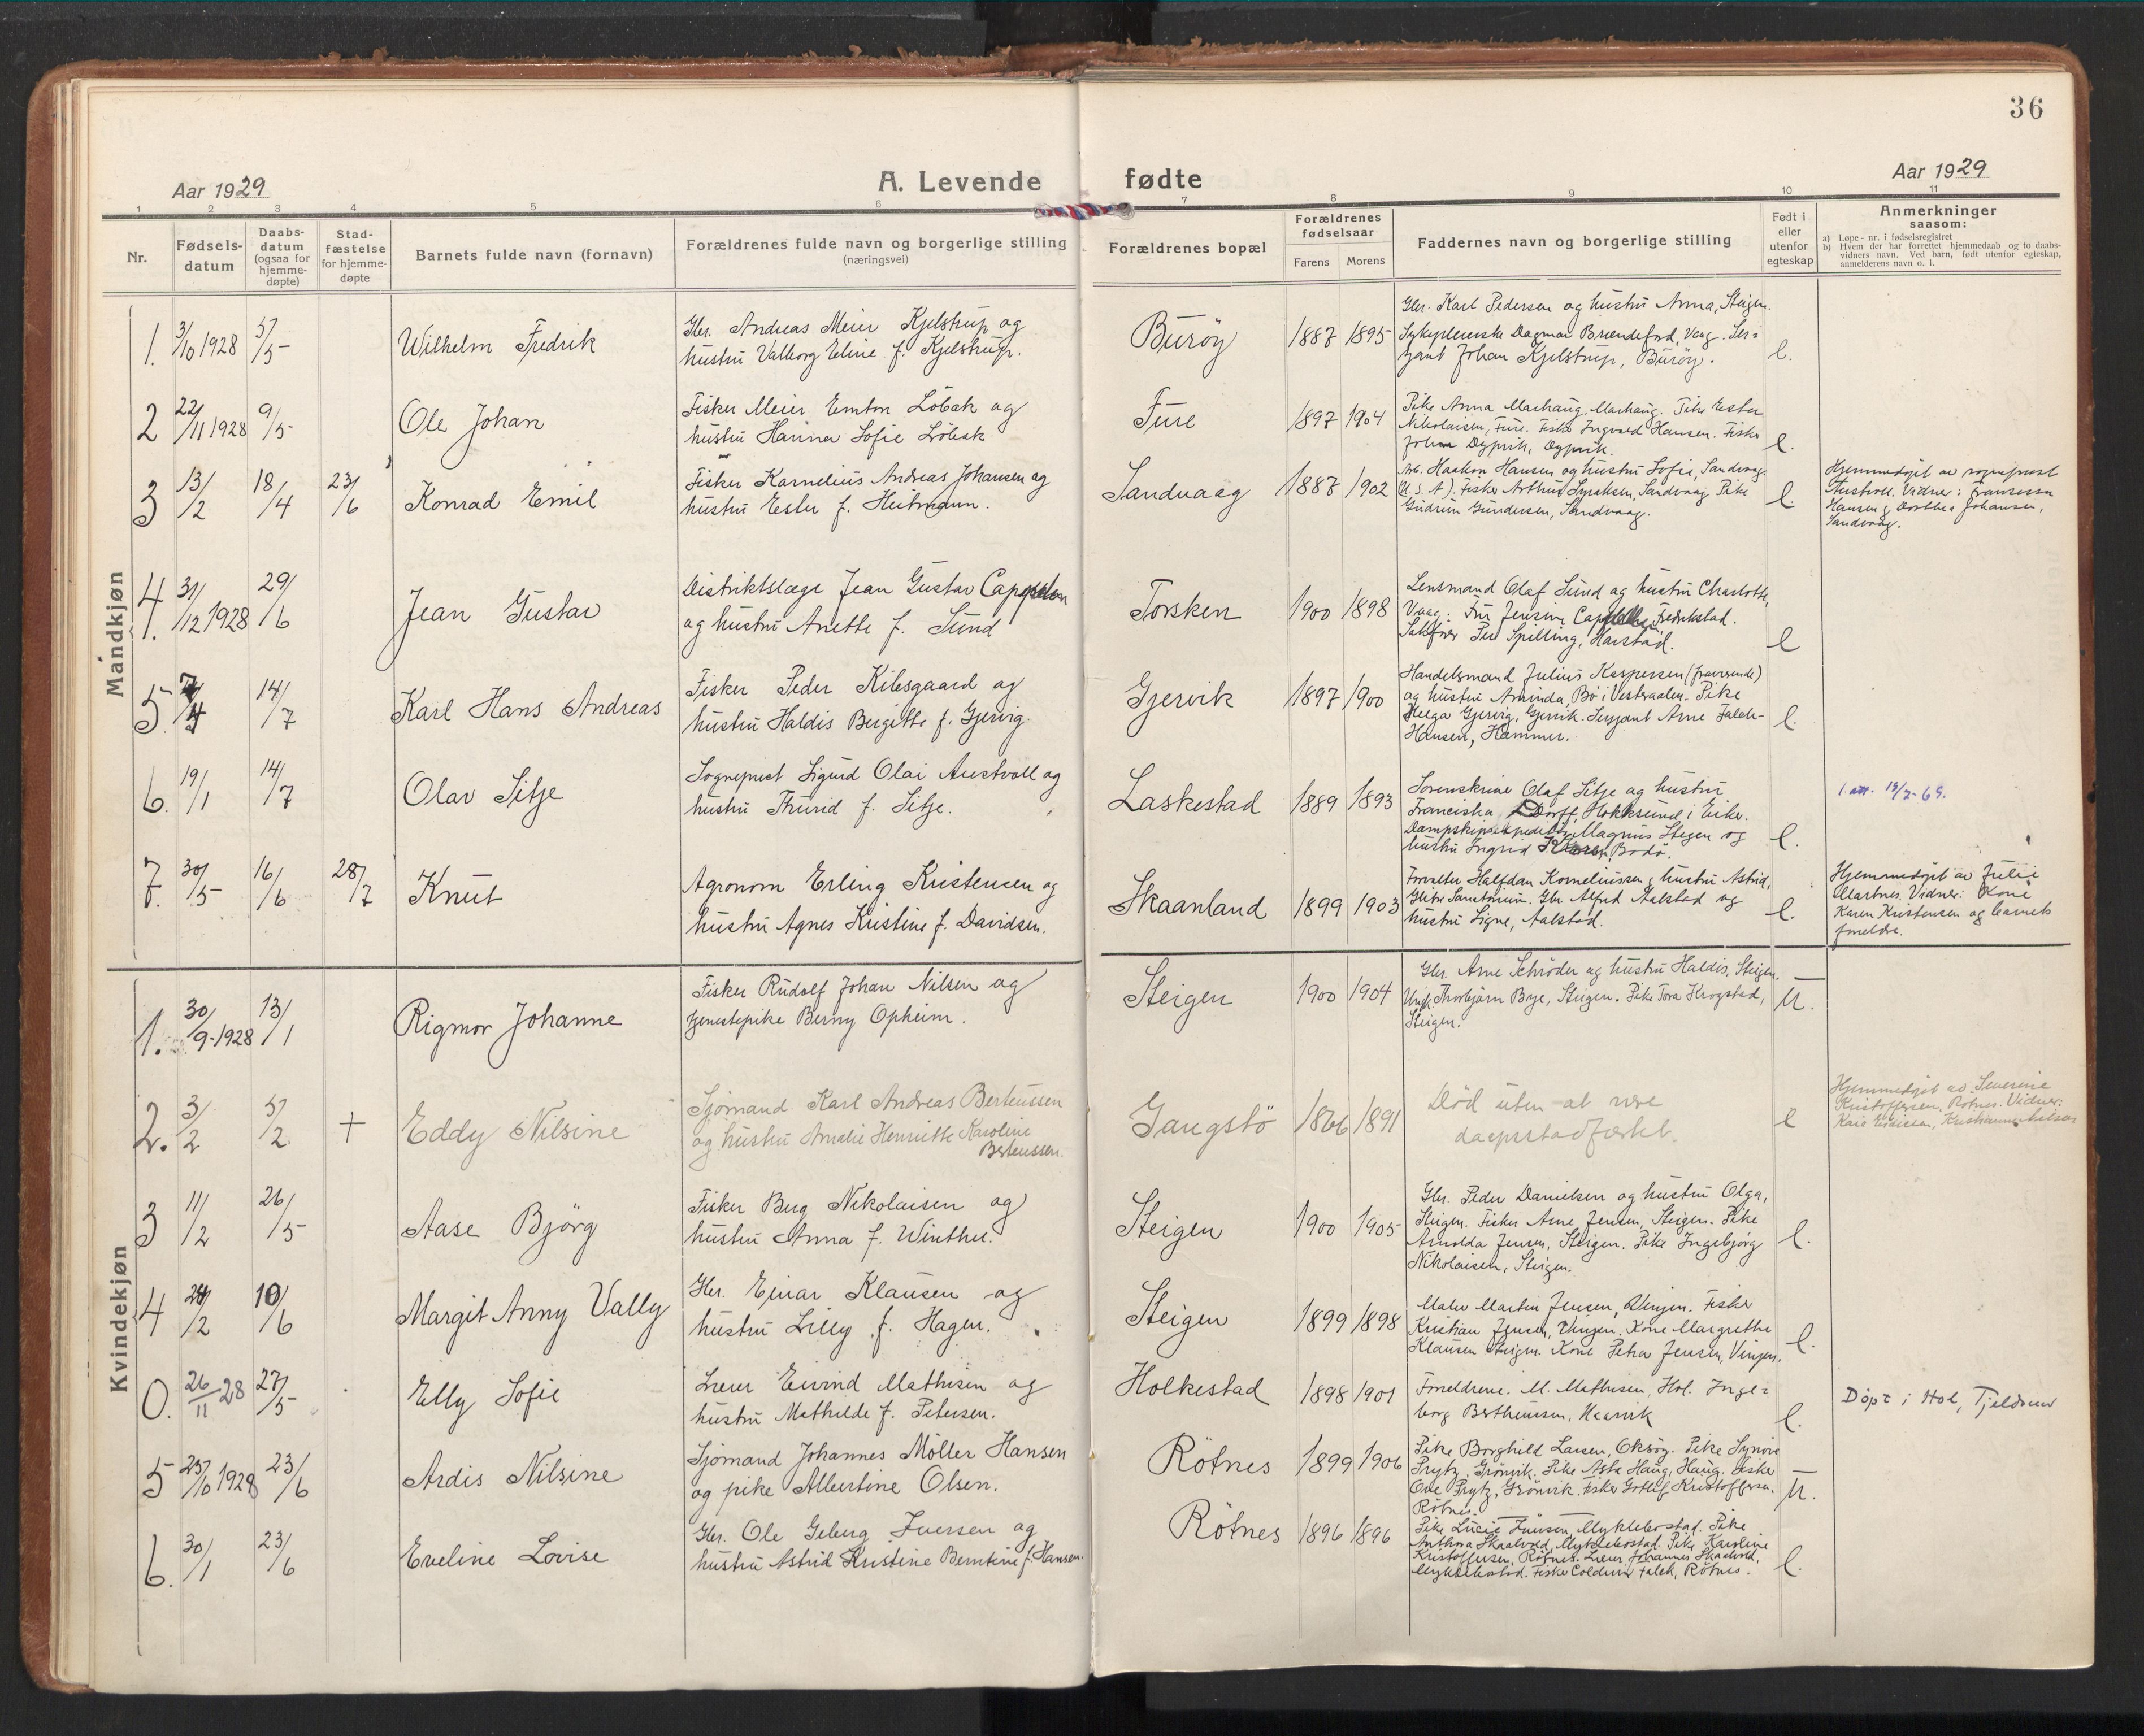 36
Aar 1929
A. Levende
fødte
Aar 1929
1 2 3 4 5 6 7 8 9 10 11
Nr.
Fødsels-
datum
Daabs-
datum
(ogsaa for
hjemme-
døpte)
Stad-
fæstelse
for hjemme-
døpte
Barnets fulde navn (fornavn)
Forældrenes fulde navn og borgerlige stilling
(næringsvei)
Forældrenes bopæl
Forældrenes
fødselsaar
Farens Morens
Faddernes navn og borgerlige stilling
Født i
eller
utenfor
egteskap
Anmerkninger
saasom:
a) Løpe-nr. i fødselsregistret
b) Hvem der har forrettet hjemmedaab og to daabs-
vidners navn. Ved barn, født utenfor egteskap,
anmelderens navn o. l.
Mandkjøn
1. 3/10 1928 5/5
Wilhelm Fredrik
Gbr. Andreas Meier Kjelstrup og
hustru Valborg Eline f. Kjelstrup.
Buröy
1887 1895
Gbr. Karl Pedersen og hustru Anna, Steigen.
Sykepleierske Dagmar Vaag. Ser=
gant Johan Kjelstrup, Buröy.
e.
2 22/11 1928 9/5
Ole Johan
Fisker Meier Emton Löbak og
hustru Hanna Sofie Löbak
Fure
1897 1904
Pike Anna Marhaug, Marhaug. Pike Ester
Nikolaisen, Fure. Fisker Ingvald Hansen. Fisker
Johan Dypvik, Dypvik.
e.
3 13/2 18/4 23/6
Konrad Emil
Fisker Kornelius Andreas Johansen og
hustru Ester f. Heitmann.
Sandvaag
1887 1902
Arb. Haakon Hansen og hustru Sofie, Sandvaag
(U.S.A). Fisker Arthur Syraksen, Sandvaag Pike
Gudrun Gundersen, Sandvaag.
e
Hjemmedöpt av sogneprest
Austvoll. Vidner: Fransessa
Hansen & Dorthea Johansen,
Sandvaag.
4. 31/12 1928 29/6
Jean Gustav
Distriktslæge Jean Gustav Cappelen
og hustru Anette f. Sund
Torsken
1900 1898
Lensmand Olaf Sund og hustru Charlotte,
Vaag. Fru Jensine Fredrikstad.
Sakförer Per Spilling, Harstad.
e
5. 4 14/7
Karl Hans Andreas
Fisker Peder Kilesgaard og
hustru Haldis Bergitte f. Gjervig.
Gjervik
1897 1900
Handelsmand Julius Kaspersen (fraværende)
og hustru Aminda, Bö i Vesteraalen. Pike
Helga Gjervig, Gjervik. Sersjant Arne Falck-
Hansen, Hammer.
e.
6. 19/1 14/7
Olav Sitje
Sogneprest Sigurd Olai Austvoll og
hustru Thurid f. Sitje.
Laskestad
1889 1893
Sorenskriver Olaf Sitje og hustru
Franciska Dorff, Hokksund i Eiker.
Dampskipsexpeditör Magnus Steigen og
hustru Ingrid Karen, Bodö.
e.
1 att. 15/7-69.
7. 30/5 16/6 28/7
Knut
Agronom Erling Kristensen og
hustru Agnes Kristine f. Davidsen.
Skaanland
1899 1903
Forvalter Halfdan Korneliussen & hustru Astrid,
Glitre Sanatorium. Gbr. Alfred Aalstad og
hustru Signe, Aalstad.
e.
Hjemmedöpt av Julie
Martnes. Vidner: Kone
Karen Kristensen og barnets
foreldre.
Kvindekjøn
1. 30/9-1928 13/1
Rigmor Johanne
Fisker Rudolf Johan Nilsen og
tjenestepike Berny Opheim.
Steigen
1900 1904
Gbr. Arne Schröder og hustru Haldis, Steigen.
Ungk. Thorbjörn Bye, Steigen. Pike Tora Krogstad,
Steigen.
U.
2. 3/2 5/2 +
Eddy Nilsine
Sjömand Karl Andreas Berteussen
og hustru Amalie Henriette Karoline
Berteussen.
Gangstö
1866 1891
Död uten at være
daapsstadfæstet.
e
Hjemmedöpt av Severine
Kristoffersen, Rötnes. Vidner:
3 11/2 26/5
Aase Björg
Fisker Berg Nikolaisen og
hustru Anna f. Winther.
Steigen
1900 1905
Gbr. Peder Danielsen og hustru Olga,
Steigen. Fisker Arne Jensen, Steigen. Pike
Arnolda Jensen, Steigen. Pike Ingebjörg
Nikolaisen, Steigen.
e.
4 24/2 10/6
Margit Anny Vally
Gbr. Ejnar Klausen og
hustru Lilly f. Hagen.
Steigen
1899 1898
Maler Martin Jensen, Vinjen. Fisker
Kristian Jensen, Vinjen. Kone Margrethe
Klausen Steigen. Kone Petra Jensen, Vinjen.
e.
0. 26/11 28 27/5
Elly Sofie
Lærer Eivind Mathisen og
hustru Mathilde f. Petersen.
Holkestad
1898 1901
Foreldrene. M. Mathisen, Hol. Inge=
borg Bertheussen, Hearvik
e.
Döpt i Hol, Tjeldsund
5 25/10 1928 23/6
Ardis Nilsine
Sjömand Johannes Möller Hansen
og pike Albertine Olsen.
Rötnes
1899 1906
Pike Borghild Larsen, Oksöy. Pike Synöve
Prytz, Grönvik. Pike Asta Haug, Haug. Fisker
Ove Prytz, Grönvik. Fisker Gotlif Kristoffersen,
Rötnes.
U.
6. 30/1 23/6
Eveline Lovise
Gbr. Ole Geberg Iversen og
hustru Astrid Kristine Berntine f. Hansen.
Rötnes
1896 1896
Pike Lucie Jansen, Myklebostad. Pike
Anthora Skaalvold, Myklebostad. Pike Karoline
Kristoffersen, Rötnes. Lærer Johannes Skaalvold,
Myklebostad. Fisker Falch, Rötnes.
e.